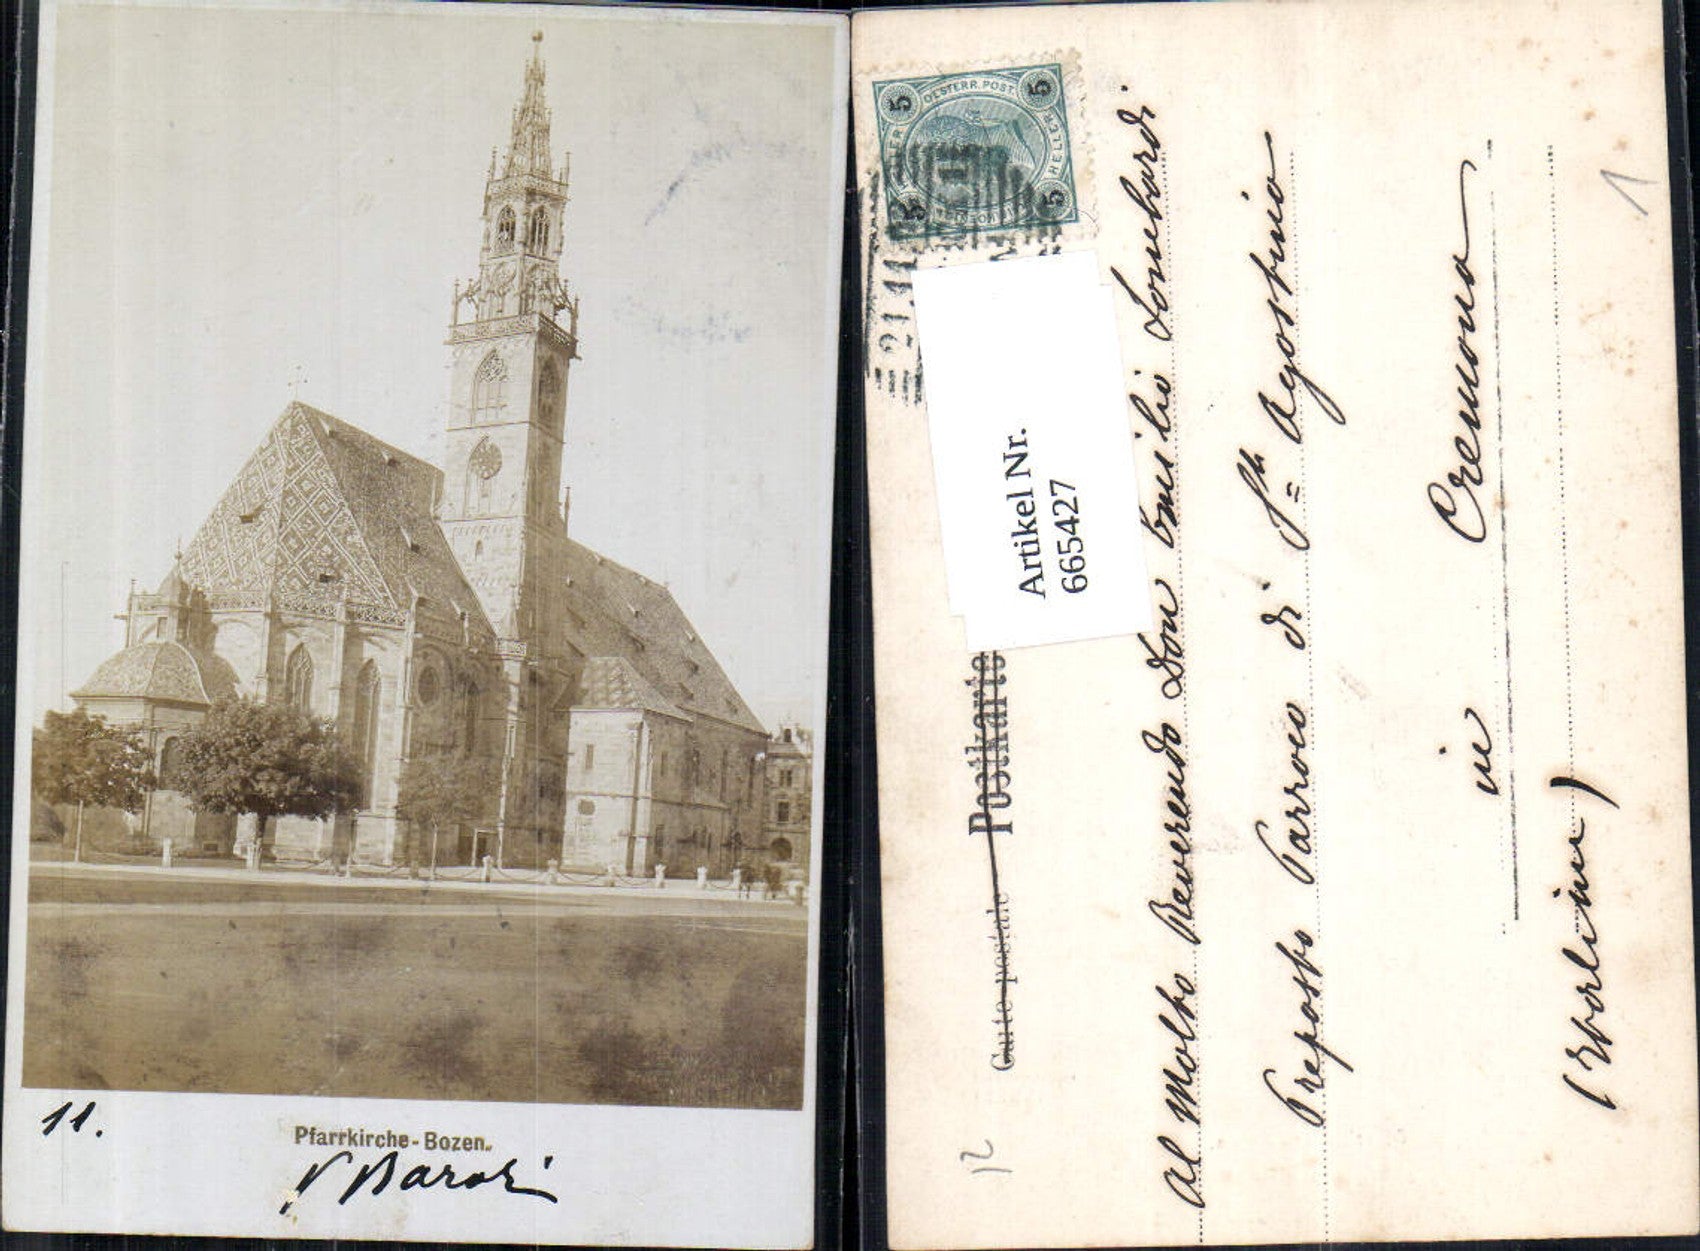 11.
Pfarrkirche-Bozen.
5
OESTERR. POST.
5
HELLER
5
5
21.11
Artikel Nr.
665427
Carte postale — Postkarte
Al Molto Reverendo Don Emilio Lombardi
Preposto Parroco di St. Agostino
in Cremona
1
12